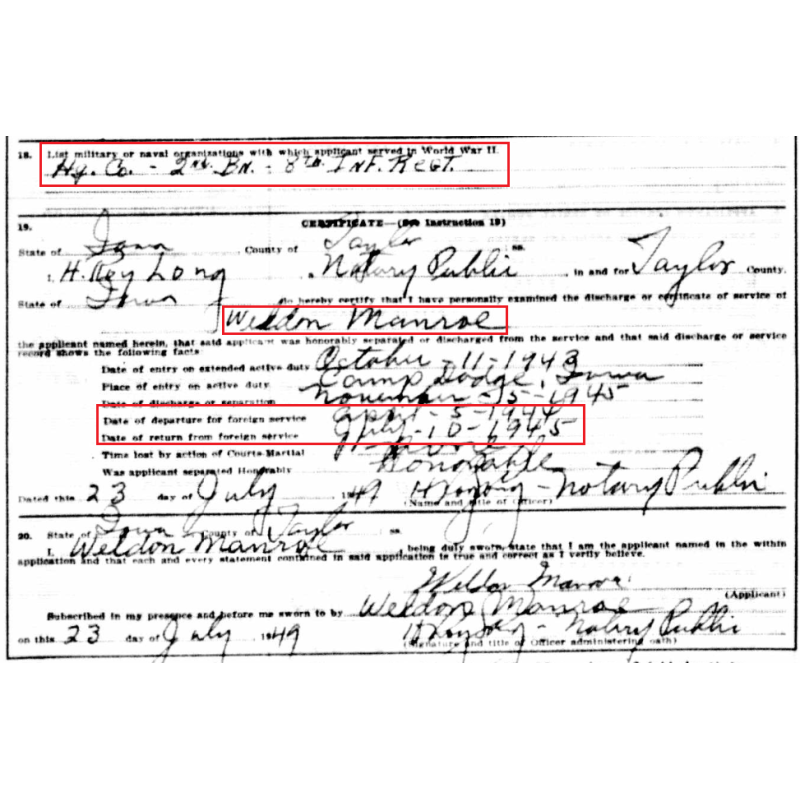 18. List military or naval organizations with which applicant served in World War II.
Hq. Co. - 2nd. Bn. - 8th. Inf. Regt.
19. CERTIFICATE—(See Instruction 19)
State of Iowa County of Taylor ss.
I, H. Roy Long a Notary Public in and for Taylor County,
State of Iowa do hereby certify that I have personally examined the discharge or certificate of service of
Weldon Manroe
the applicant named herein, that said applicant was honorably separated or discharged from the service and that said discharge or service
record shows the following facts:
Date of entry on extended active duty October - 11 - 1943
Place of entry on active duty Camp Dodge, Iowa
Date of discharge or separation November - 15 - 1945
Date of departure for foreign service April - 5 - 1944
Date of return from foreign service July - 10 - 1945
Time lost by action of Courts-Martial None
Was applicant separated Honorably Honorable
Dated this 23 day of July 1949 H Roy Long - Notary Public
(Name and title of Officer)
20. State of Iowa County of Taylor ss.
I, Weldon Manroe, being duly sworn, state that I am the applicant named in the within
application and that each and every statement contained in said application is true and correct as I verily believe.
Weldon Manroe
(Applicant)
Subscribed in my presence and before me sworn to by Weldon Manroe
on this 23 day of July 1949 H Roy Long - Notary Public
(Signature and title of Officer administering oath)